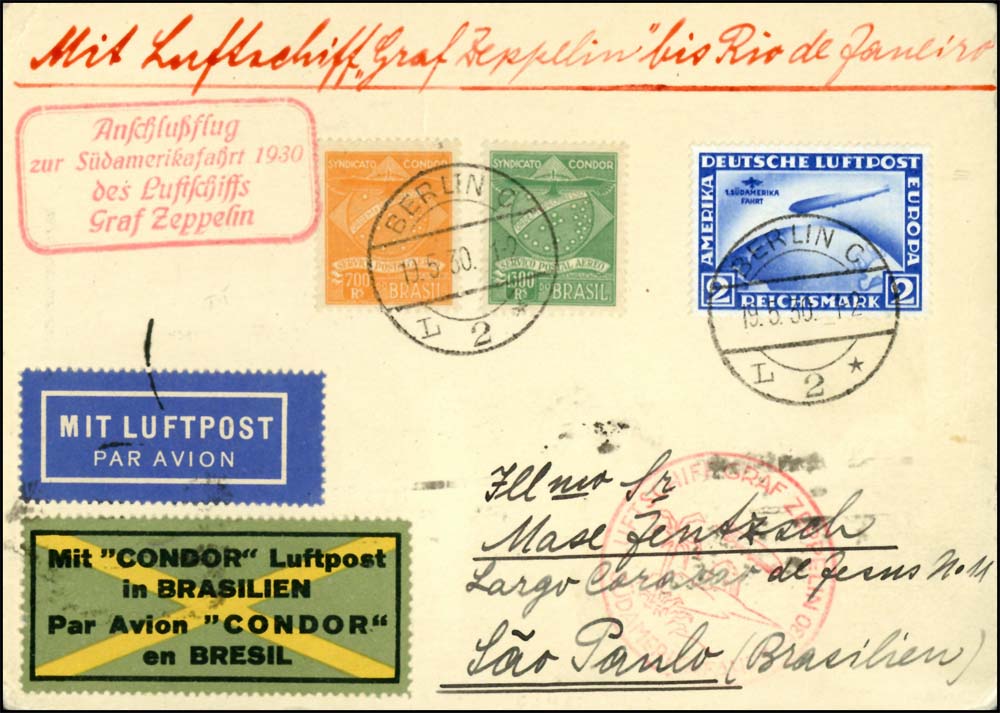 Mit Luftschiff „Graf Zeppelin" bis Rio de Janeiro
Anschlußflug
zur Südamerikafahrt 1930
des Luftschiffs
Graf Zeppelin
SYNDICATO CONDOR
SERVICO POSTAL AEREO
700 Rs DO BRASIL
SYNDICATO CONDOR
SERVICO POSTAL AEREO
1300 Rs DO BRASIL
BERLIN C
19.5.30. 1-2
L 2 *
DEUTSCHE LUFTPOST
AMERIKA
EUROPA
1. SÜDAMERIKA
FAHRT
2 REICHSMARK 2
BERLIN C
19.5.30. 1-2
L 2 *
MIT LUFTPOST
PAR AVION
Mit "CONDOR“ Luftpost
in BRASILIEN
Par Avion "CONDOR“
en BRESIL
LUFTSCHIFF GRAF ZEPPELIN
Illmo Sr
Mase Jentzsch
Largo Coração de Jesus No 11
São Paulo (Brasilien)